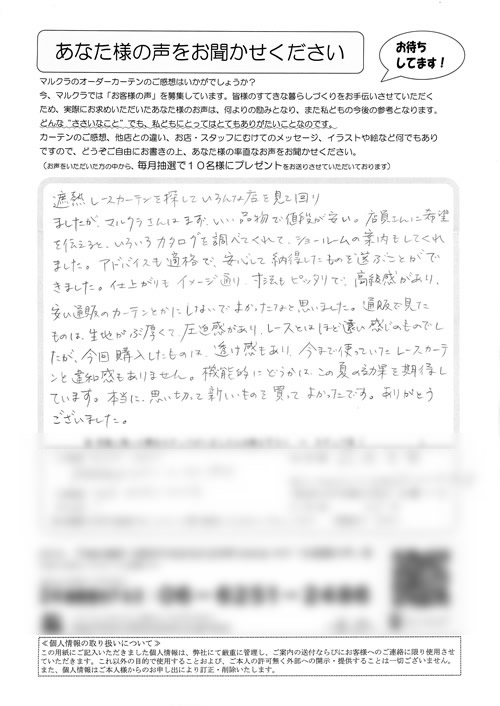 あなた様の声をお聞かせください
お待ち
してます！
マルクラのオーダーカーテンのご感想はいかがでしょうか？
今、マルクラでは「お客様の声」を募集しています。皆様のすてきな暮らしづくりをお手伝いさせていただく
ため、実際にお求めいただいたあなた様のお声は、何よりの励みとなり、また私どもの今後の参考となります。
どんな“ささいなこと”でも、私どもにとってはとてもありがたいことなのです。
カーテンのご感想、他店との違い、お店・スタッフにむけてのメッセージ、イラストや絵など何でもあり
ですので、どうぞご自由にお書きの上、あなた様の率直なお声をお聞かせください。
（お声をいただいた方の中から、毎月抽選で１０名様にプレゼントをお送りさせていただいております）
遮熱レースカーテンを探していろんな店を見て回り
ましたが、マルクラさんはまず、いい品物で値段が安い。店員さんに希望
を伝えると、いろいろカタログを調べてくれて、ショールームの案内もしてくれ
ました。アドバイスも適格で、安心して納得したものを選ぶことがで
きました。仕上がりもイメージ通り、寸法もピッタリで、高級感があり、
安い通販のカーテンとかにしないでよかったなと思いました。通販で見た
ものは、生地がぶ厚くて圧迫感があり、レースとはほど遠い感じのものでし
たが、今回購入したものは、透け感もあり、今まで使っていたレースカーテ
ンと違和感もありません。機能的にどうかは、この夏の効果を期待し
ています。本当に、思い切って新しいものを買ってよかったです。ありがとう
ございました。
≪個人情報の取り扱いについて≫
この用紙にご記入いただきました個人情報は、弊社にて厳重に管理し、ご案内の送付ならびにお客様へのご連絡に限り使用させ
ていただきます。これ以外の目的で使用することおよび、ご本人の許可無く外部への開示・提供することは一切ございません。
また、個人情報はご本人様からのお申し出により訂正・削除いたします。